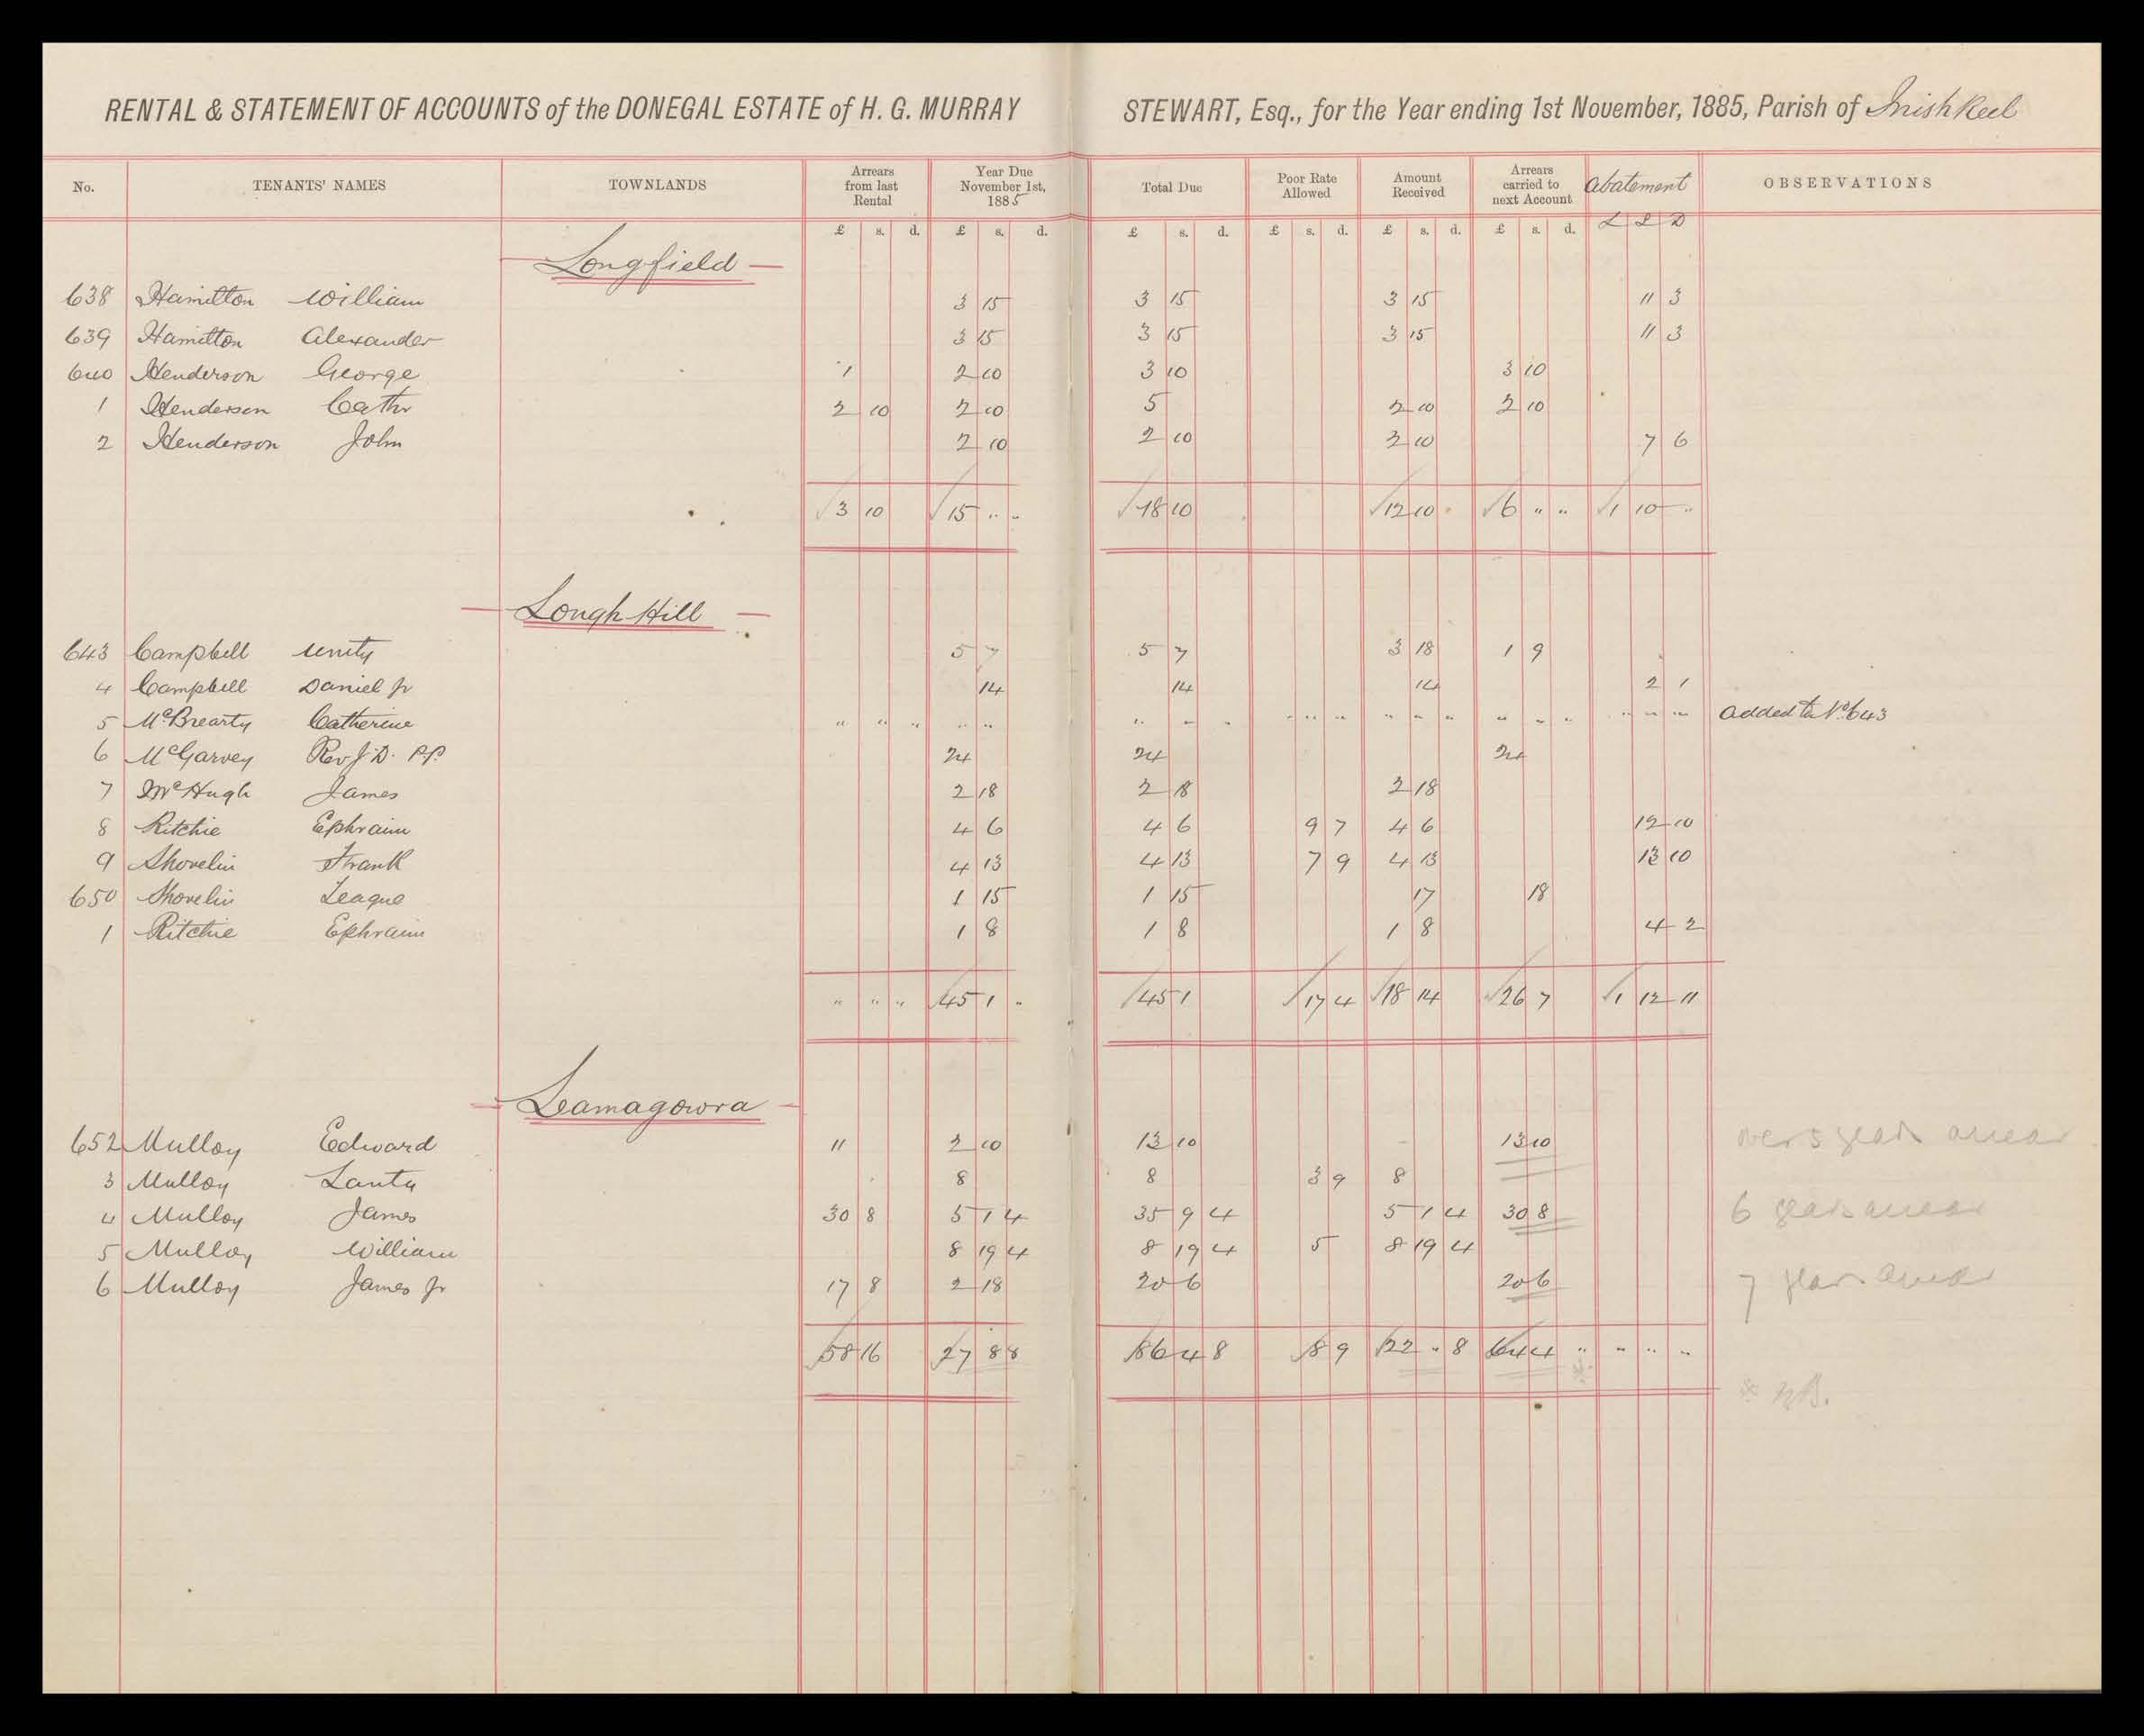 RENTAL & STATEMENT OF ACCOUNTS of the DONEGAL ESTATE of H. G. MURRAY STEWART, Esq., for the Year ending 1st November, 1885, Parish of Inishkeel
No. TENANTS' NAMES TOWNLANDS Arrears from last Rental Year Due November 1st, 1885 Total Due Poor Rate Allowed Amount Received Arrears carried to next Account Abatement OBSERVATIONS
£ s. d. £ s. d. £ s. d. £ s. d. £ s. d. £ s. d. £ S D
Longfield
638 Hamilton William 3 15 3 15 3 15 11 3
639 Hamilton Alexander 3 15 3 15 3 15 11 3
640 Henderson George 1 2 10 3 10 3 10
1 Henderson Cathr 2 10 2 10 5 2 10 2 10
2 Henderson John 2 10 2 10 2 10 7 6
3 10 15 " " 18 10 12 10 6 " " 1 10 "
Lough Hill
643 Campbell Unity 5 7 5 7 3 18 1 9
4 Campbell Daniel Jr 14 14 14 2 1
5 McBrearty Catherine " " " " " " " " " " " " " " " " " " " " Added to No 643
6 McGarvey Rev J. D. P.P. 24 24 24
7 McHugh James 2 18 2 18 2 18
8 Ritchie Ephraim 4 6 4 6 9 7 4 6 12 10
9 Shovelin Frank 4 13 4 13 7 9 4 13 13 10
650 Shovelin Teague 1 15 1 15 17 18
1 Ritchie Ephraim 1 8 1 8 1 8 4 2
" " " 45 1 " 45 1 17 4 18 14 26 7 1 12 11
Leamagowra
652 Mulloy Edward 11 2 10 13 10 13 10 over 5 years arrear
3 Mulloy Lanty 8 8 3 9 8
4 Mulloy James 30 8 5 1 4 35 9 4 5 1 4 30 8 6 years arrear
5 Mulloy William 8 19 4 8 19 4 5 8 19 4
6 Mulloy James Jr 17 8 2 18 20 6 20 6 7 years arrear
58 16 27 8 8 86 4 8 8 9 22 " 8 64 4 " " " "
* NB.